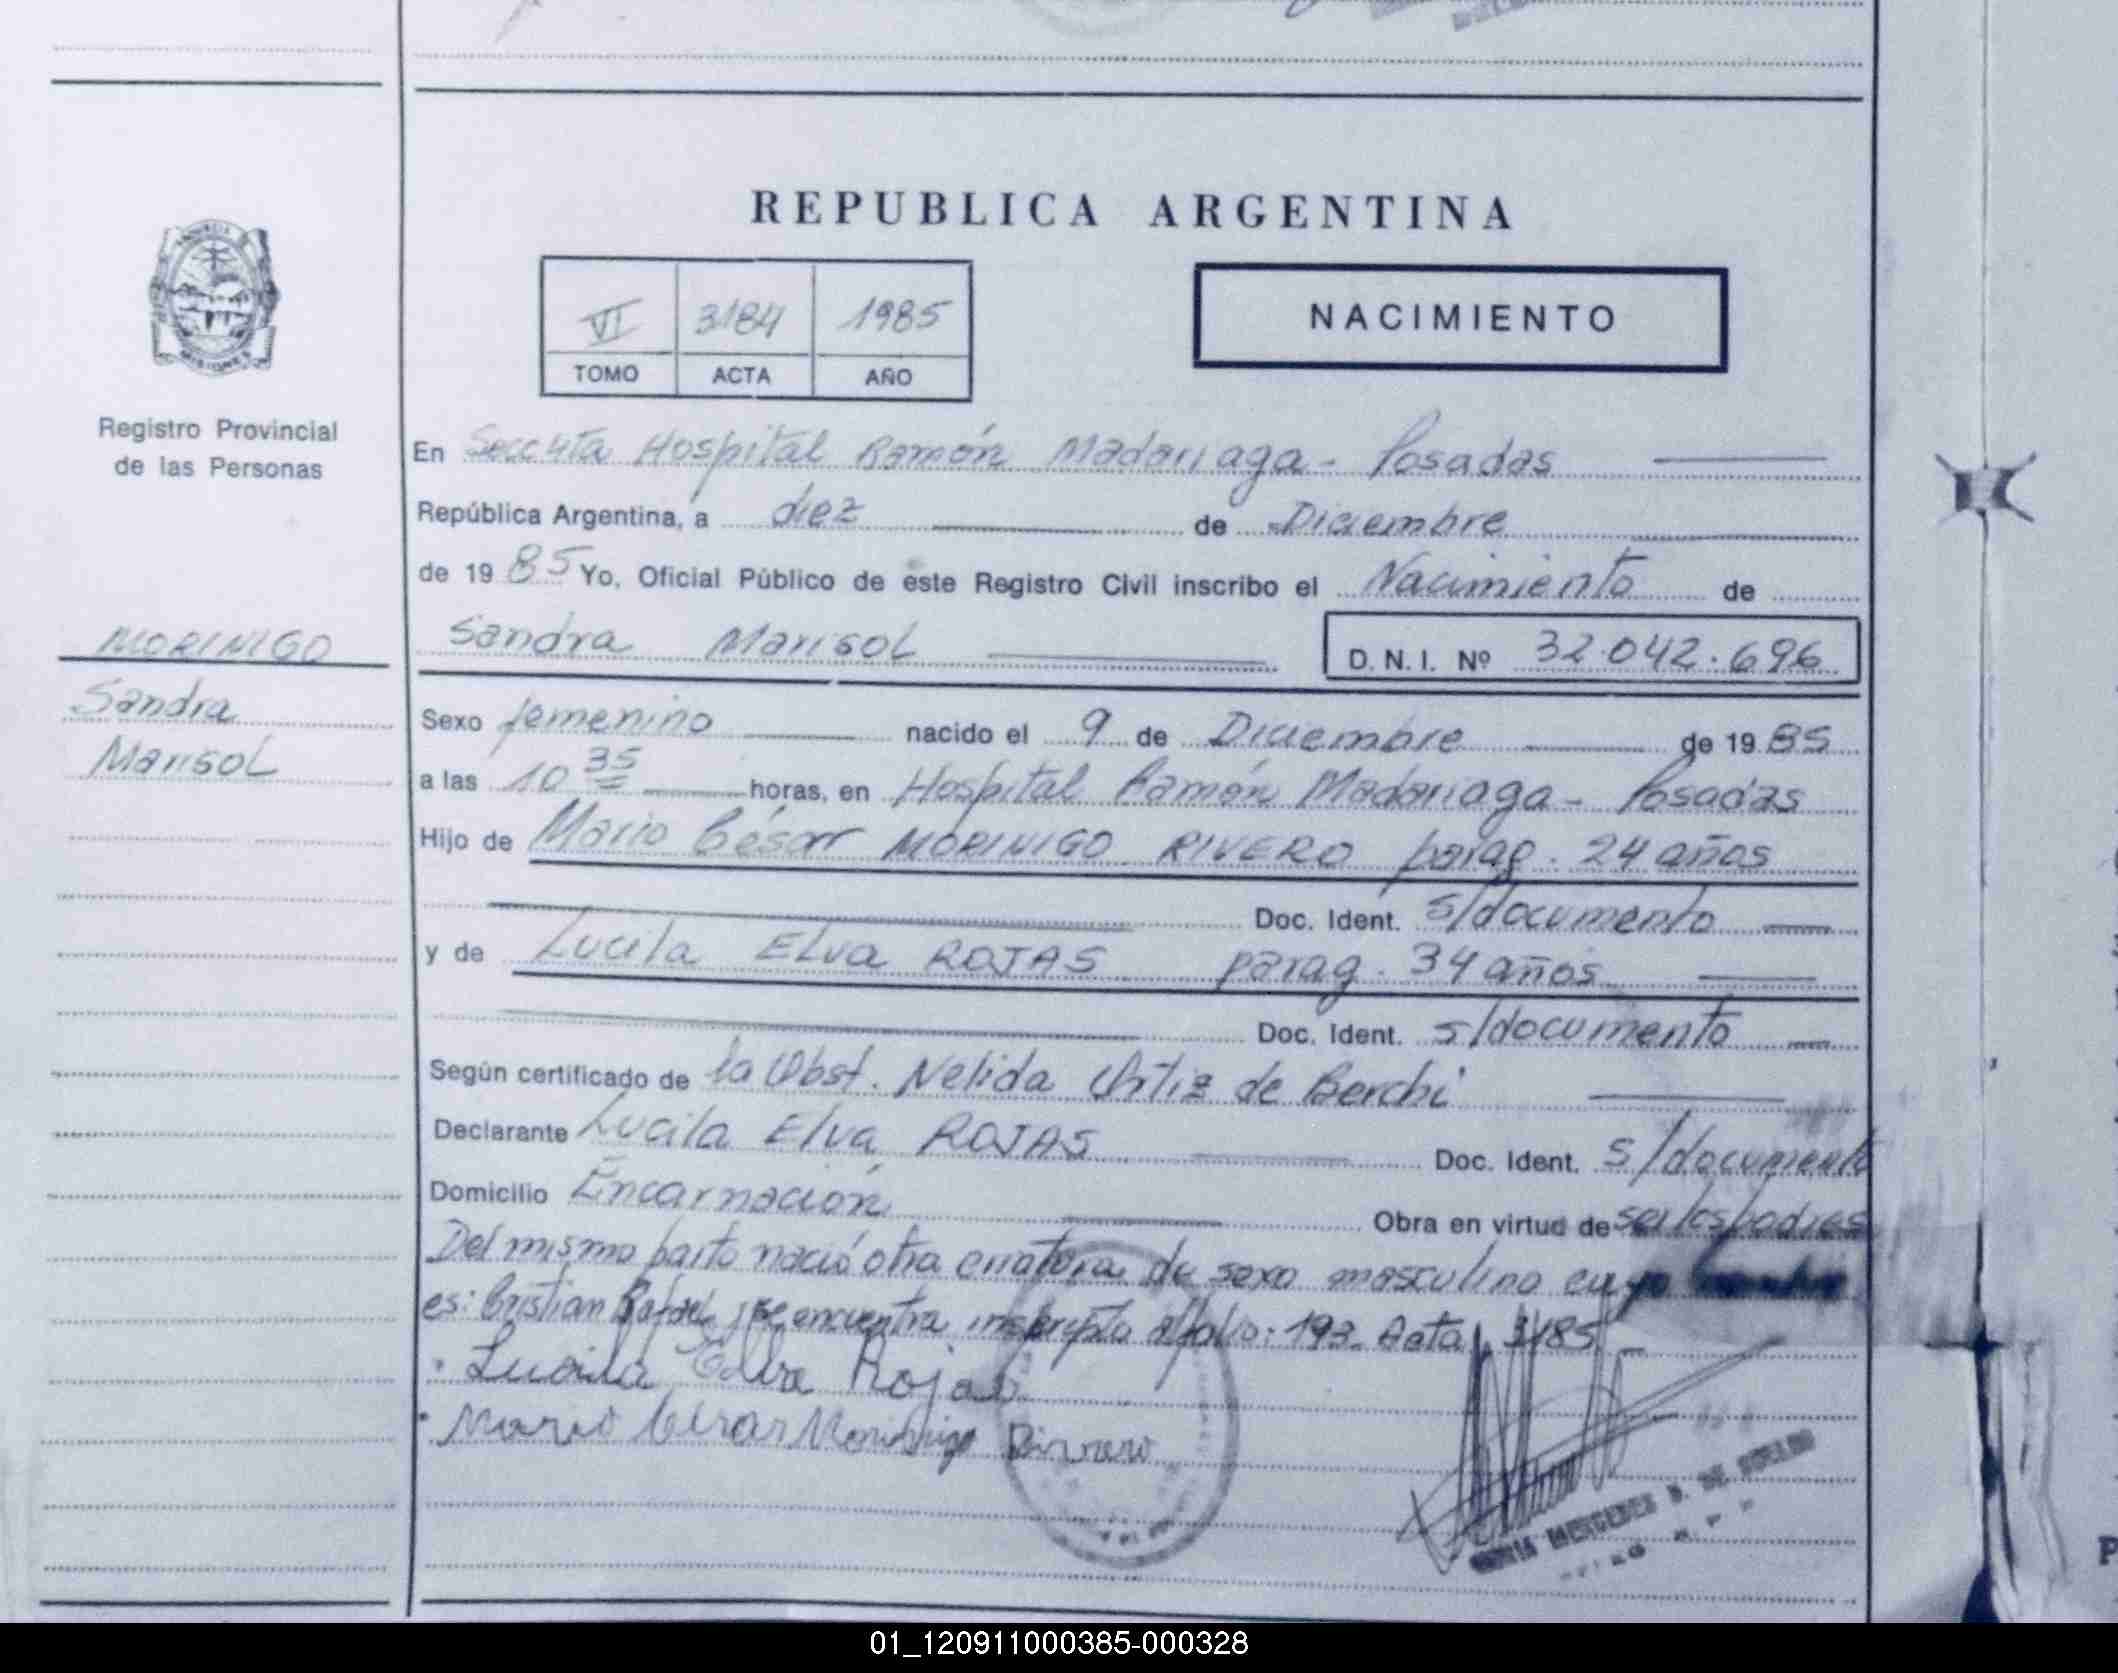 REPUBLICA ARGENTINA
VI 3184 1985
TOMO ACTA AÑO
NACIMIENTO
Registro Provincial
de las Personas
MORINIGO
Sandra
Marisol
En Secc 4ta Hospital Ramón Madariaga - Posadas
República Argentina, a diez de Diciembre
de 1985 Yo, Oficial Público de este Registro Civil inscribo el Nacimiento de
Sandra Marisol D.N.I. Nº 32.042.696
Sexo femenino nacido el 9 de Diciembre de 1985
a las 10 35 horas, en Hospital Ramón Madariaga - Posadas
Hijo de Mario César MORINIGO RIVERO parag. 24 años
Doc. Ident. s/documento
y de Lucila Elva ROJAS parag. 34 años
Doc. Ident. s/documento
Según certificado de la Obst. Nelida Ortiz de Berchi
Declarante Lucila Elva ROJAS Doc. Ident. s/documento
Domicilio Encarnación Obra en virtud de ser los padres
Del mismo parto nació otra criatura de sexo masculino cuyo
es: Cristian Rafael, se encuentra inscripto al folio: 193. Acta 3185
Lucila Elva Rojas
Mario Cesar Morinigo Rivero
MARIA MERCEDES DE
01_120911000385-000328